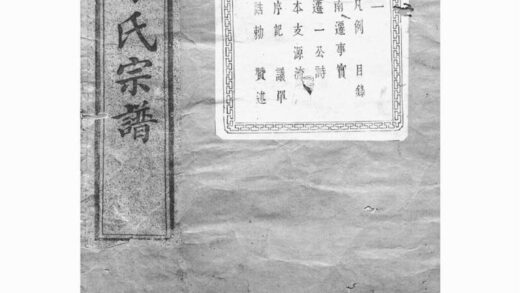 一
凡例 目錄
南遷事實
遷一公詩
本支源流
序記 議單
誥勅 贊述
氏宗譜